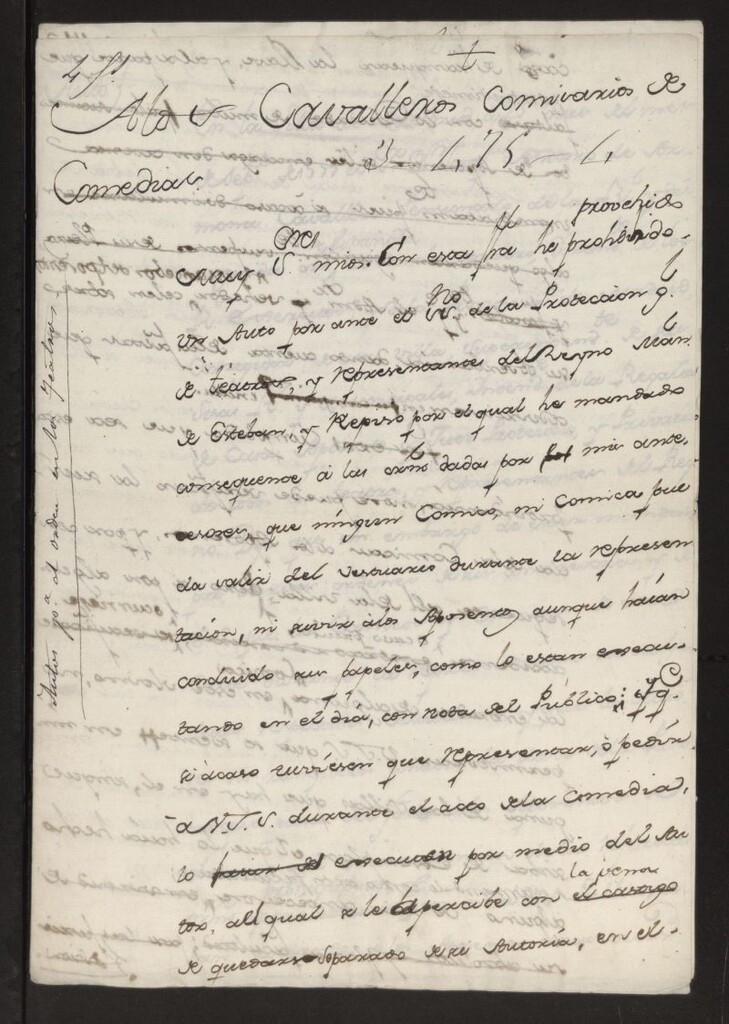 A los Cavalleros Comisarios de
Comedias.
Muy S.res mios. Con esta fha he prohehido provehido
un Auto por ante el No de la Proteccion g.l
de teatros, y Representante del Reyno Man.l
de Esteban, y Repiso por el qual he mandado
consequente á las orñs dadas por mis ante-
cesores, que ningun Comico, ni Comica pue
da salir del vestuario durante la represen
tacion, ni suvir á los Aposentos aunque haian
concluido sus papeles, como lo estan execu-
tando en el dia, con nota del Público: y q.e
si ácaso tuviesen que representar, ó pedir
a V.S.S. durante el acto de la Comedia,
lo executen por medio del Au
tor, al qual se le apercibe con el castigo la pena
de quedar separado de su Autoría, en el
Autos p.a el orden en los Teatros